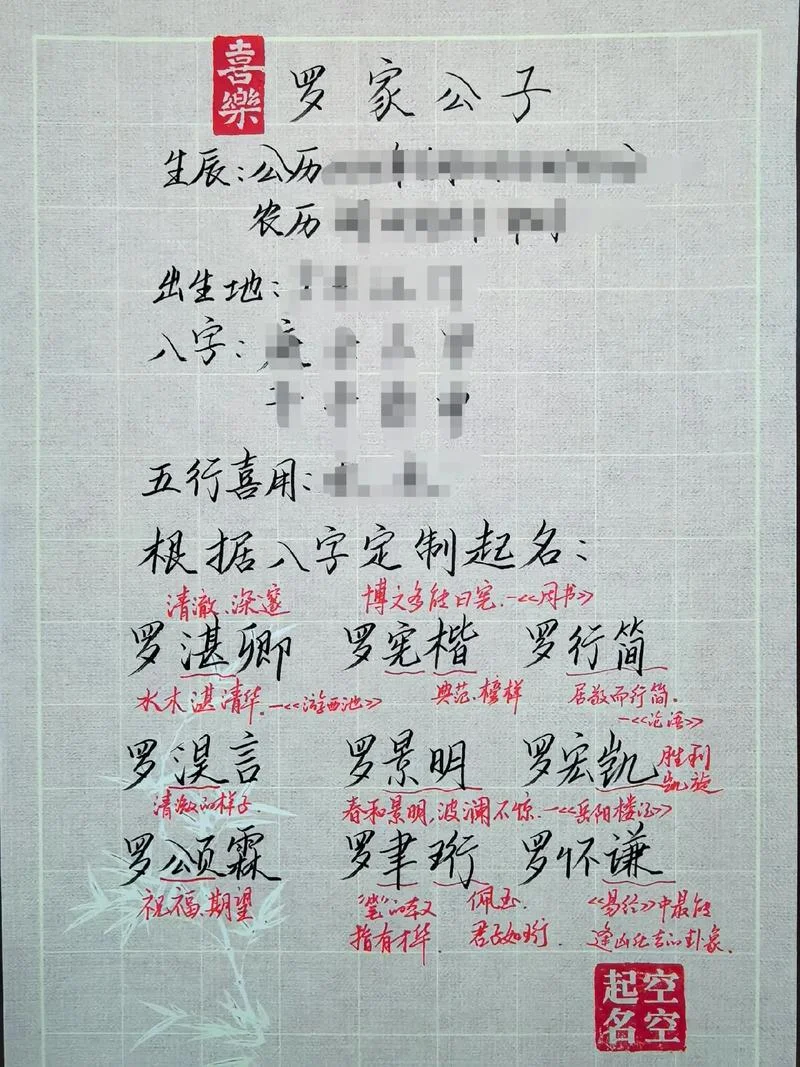 喜樂
罗家公子
生辰:公历
农历
出生地:
八字:
五行喜用:
根据八字定制起名:
清澈、深邃 博文多能曰宪.—《周书》
罗湛卿 罗宪楷 罗行简
水木湛清华.—《游西池》 典范、榜样 居敬而行简.
—《论语》
罗淏言 罗景明 罗宏凯 胜利
凯旋
清澈的样子 春和景明,波澜不惊.—《岳阳楼记》
罗颂霖 罗聿珩 罗怀谦
祝福,期望 佩玉. 《易经》中最能
指有才华 君子如珩 逢凶化吉的卦象.
空空
起名